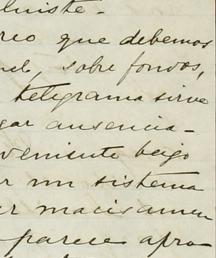 luiste-
reo que debemos
sobre fondos,
telegrama sirve
gar ausencia-
veniente bajo
ar un sistema
ar macisamen
parece apro-